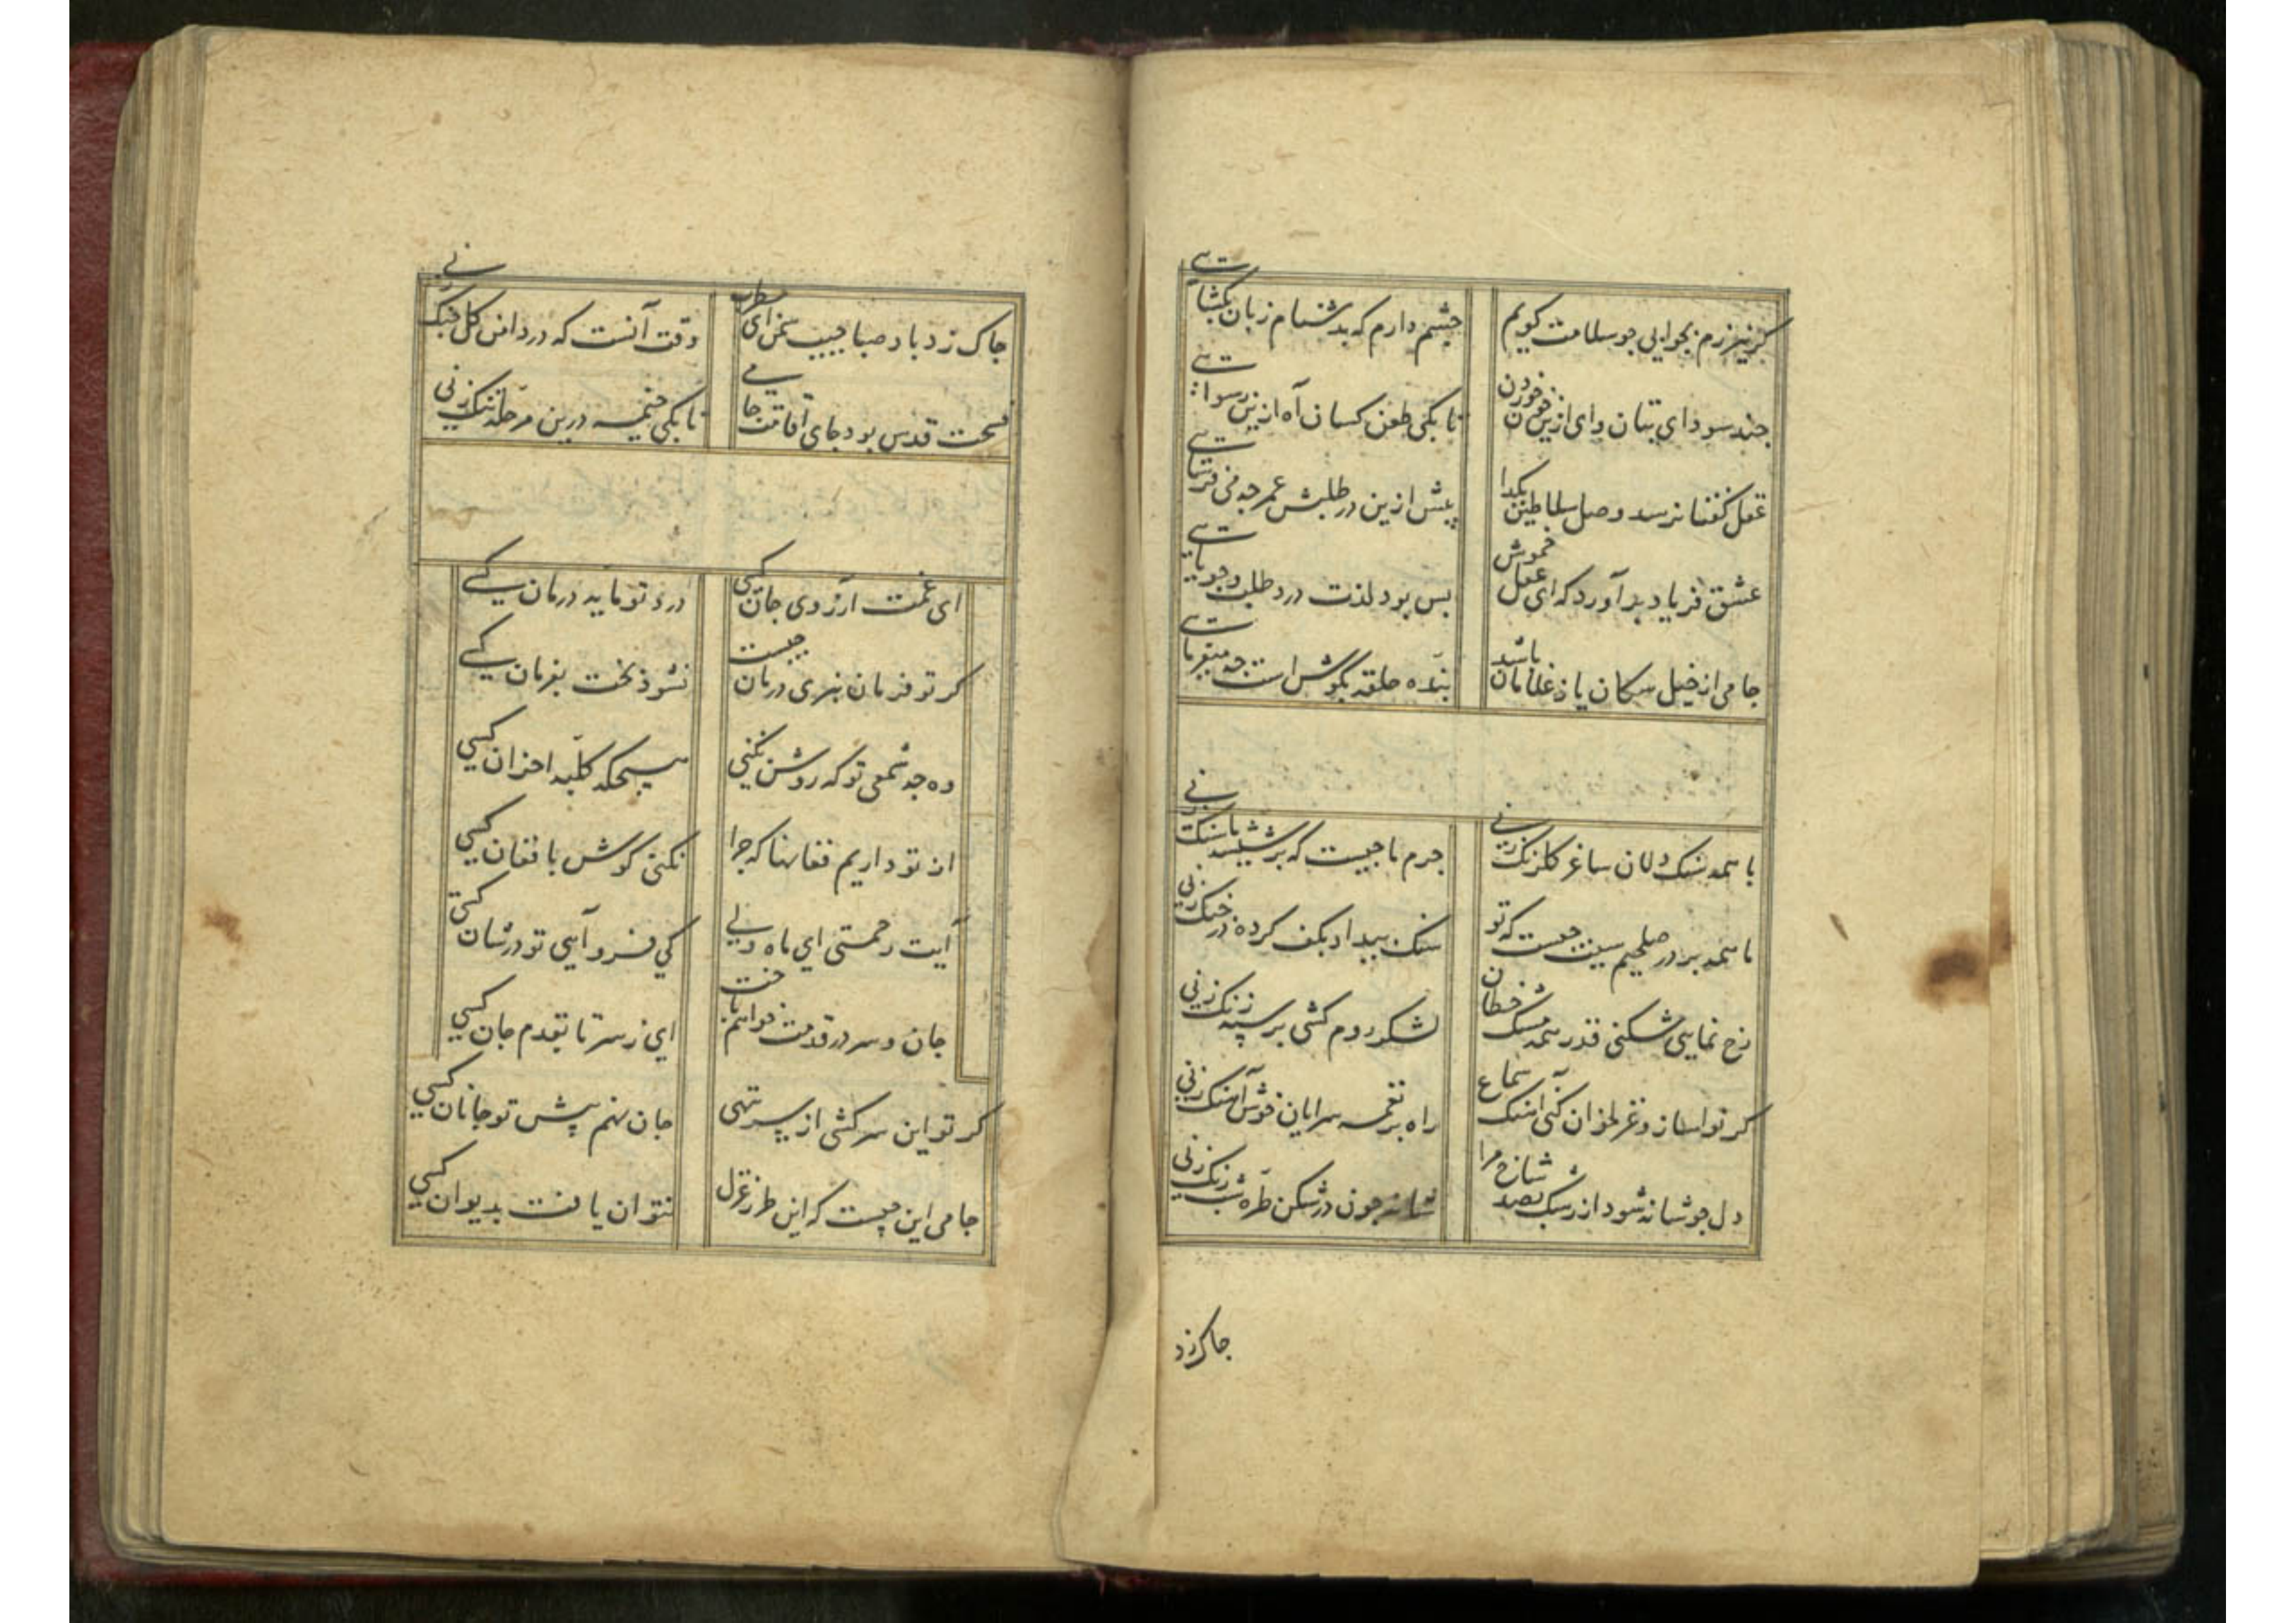 گر نیرزم بجوابی چو سلامت گویم چشم دارم که بدشنام زبان بگشایی
چند سودای بتان وای ازین خون خوردن تا بکی طعن کسان آه ازین رسوایی
عقل گفتا نرسد وصل سلاطین بگدا بیش ازین در طلبش عمر چه می فرسایی
عشق فریاد برآورد که ای عقل خموش بس بود لذت درد طلب و جویایی
جامی از خیل سگان یا ز غلامان باشد بنده حلقه بگوش است چه میفرمایی
با همه سنگ دلان ساغر گلرنگ زنی جرم ما چیست که بر شیشه ما سنگ زنی
ما همه بر در صلحیم سبب چیست که تو سنگ بیداد بکف کرده در جنگ زنی
رخ نمایی شکنی قدر همه مشک خطان لشکر روم کشی بر سپه زنگ زنی
گر تو ای ساز و غزلخوان کنی آهنگ سماع راه بر نغمه سرایان خوش آهنگ زنی
دل چو شانه شود از رشک بصد شاخ مرا شانه چون در شکن طره شبرنگ زنی
چاک زد
چاک زد باد صبا جیب سمن ای مطرب وقت آنست که در دامن گل چنگ زنی
فسحت قدس بود جای اقامت جامی تا بکی خیمه درین مرحله تنگ زنی
ای غمت آرزوی جان کسی درد تو مایه درمان کسی
گر تو فرمان نبری درمان چیست نشود بخت بفرمان کسی
وه چه شمعی تو که روشن نکنی هیچگه کلبه احزان کسی
از تو داریم فغانها که چرا نکنی گوش بافغان کسی
آیت رحمتی ای ماه ولی کی فرو آیی تو در شان کسی
جان و سر در قدمت خواهم باخت ای ز سر تا بقدم جان کسی
گر تو این سرکشی از سر بنهی جان نهم پیش تو جانان کسی
جامی این چیست که این طرز غزل نتوان یافت بدیوان کسی